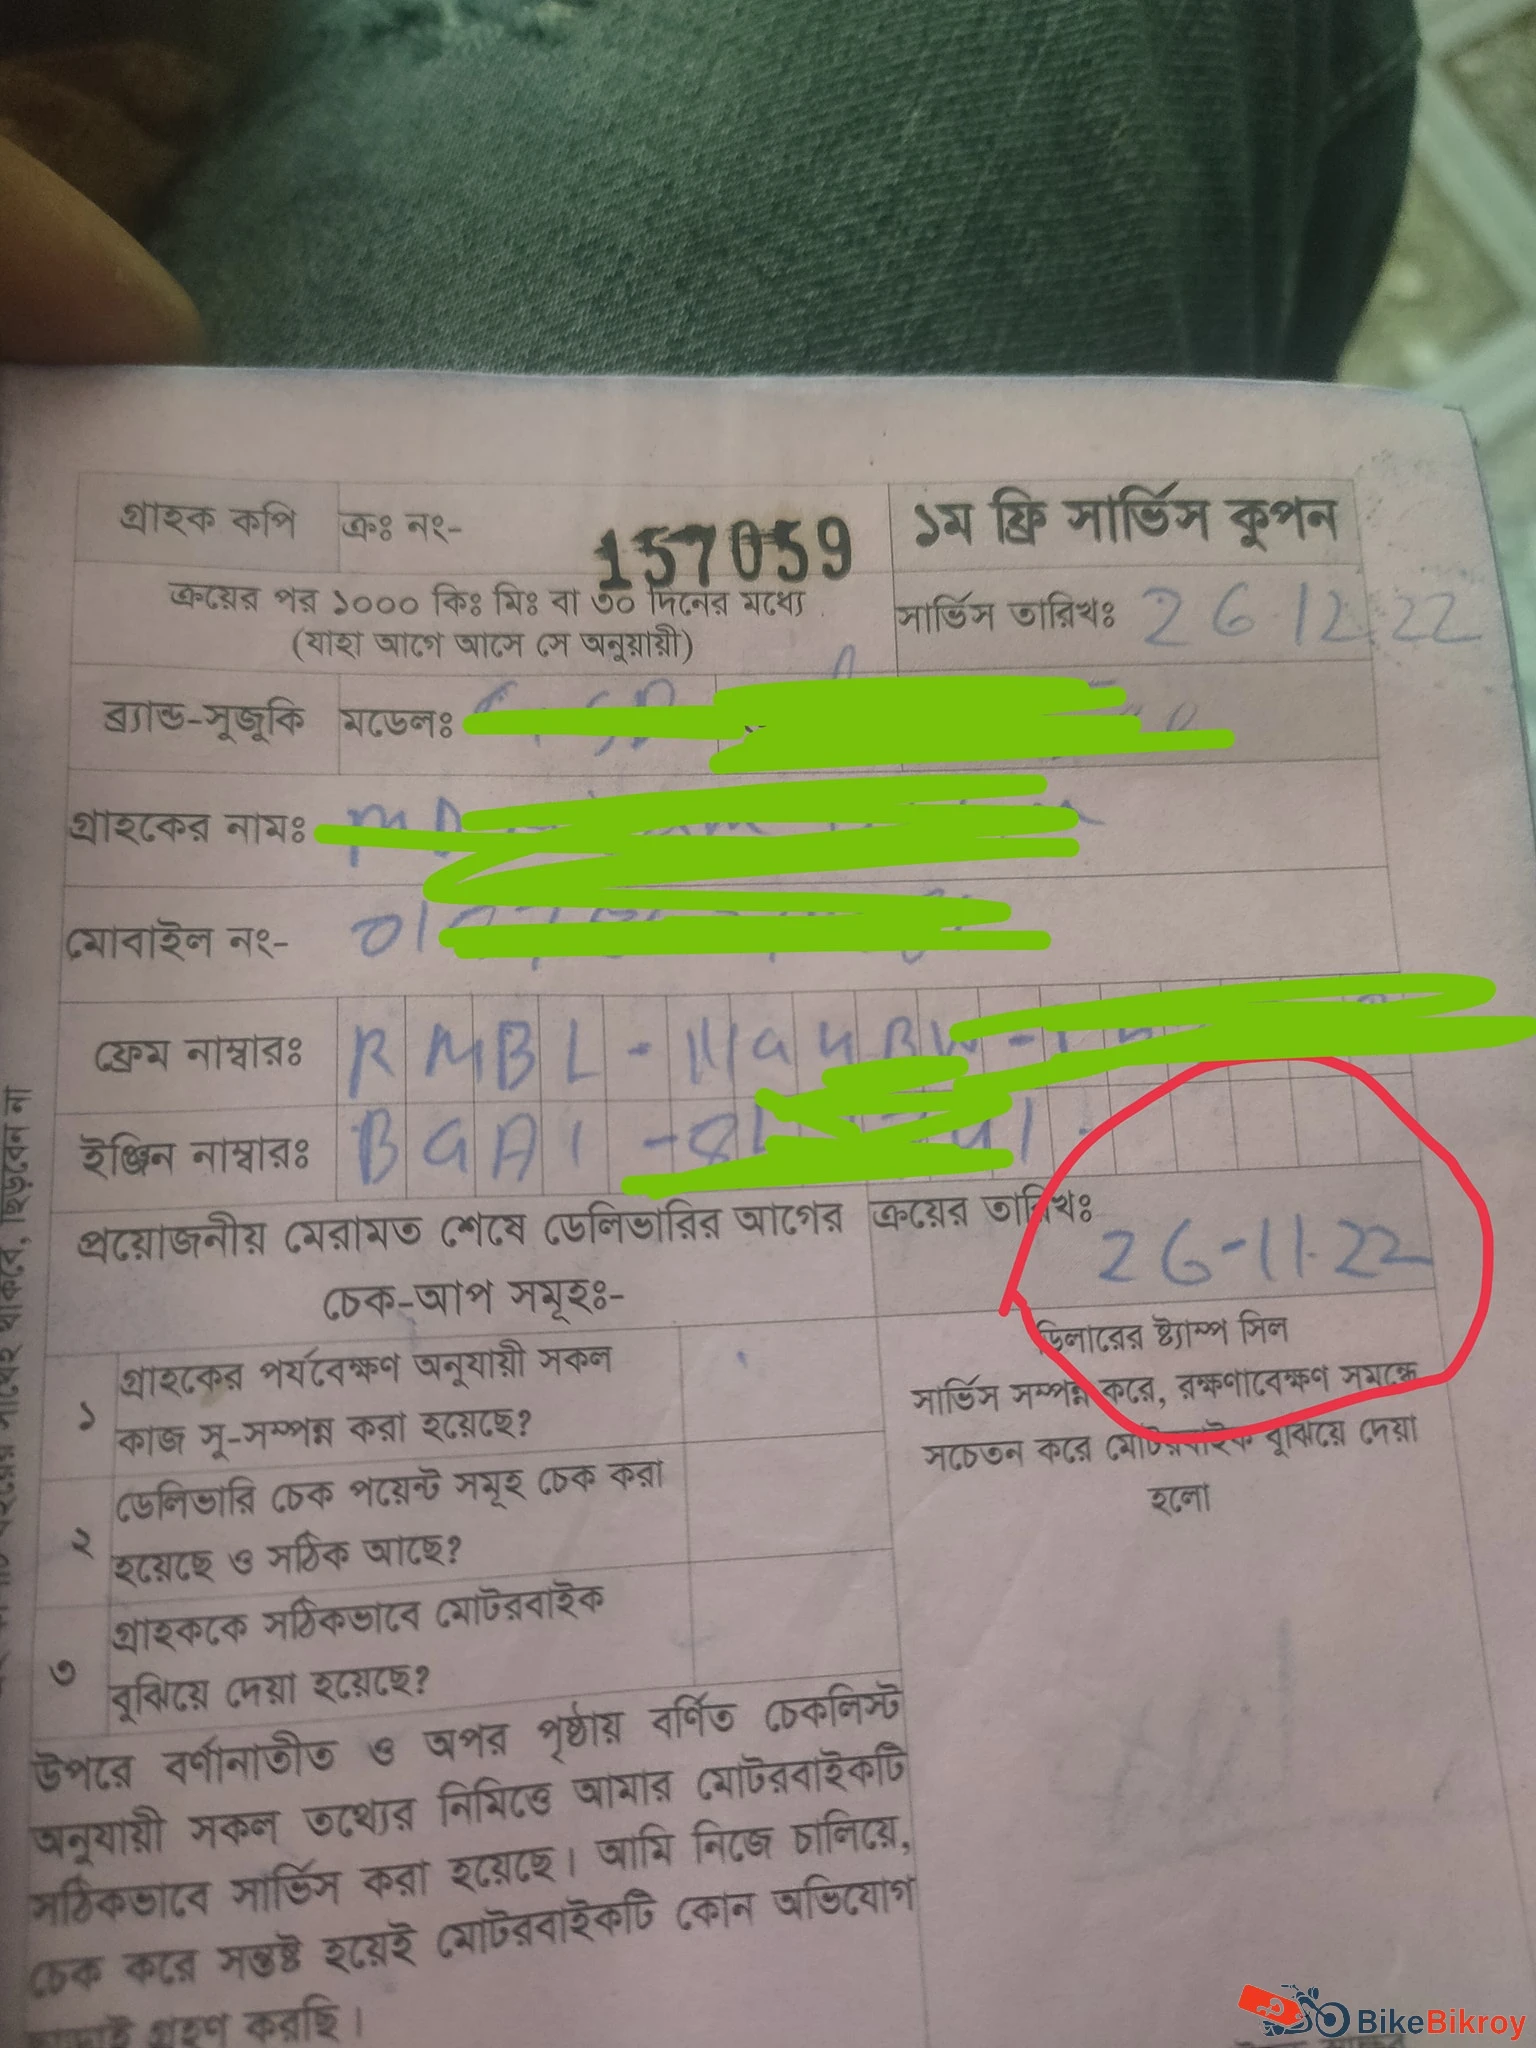 গ্রাহক কপি
ক্রঃ নং-
157059
১ম ফ্রি সার্ভিস কুপন
ক্রয়ের পর ১০০০ কিঃ মিঃ বা ৩০ দিনের মধ্যে
(যাহা আগে আসে সে অনুয়ায়ী)
সার্ভিস তারিখঃ 26.12.22
ব্র্যান্ড-সুজুকি
মডেলঃ
গ্রাহকের নামঃ MD
মোবাইল নং- 01
ফ্রেম নাম্বারঃ RMBL -
ইঞ্জিন নাম্বারঃ BGA1 -
প্রয়োজনীয় মেরামত শেষে ডেলিভারির আগের
চেক-আপ সমূহঃ-
ক্রয়ের তারিখঃ
26-11-22
১ গ্রাহকের পর্যবেক্ষণ অনুযায়ী সকল
কাজ সু-সম্পন্ন করা হয়েছে?
২ ডেলিভারি চেক পয়েন্ট সমূহ চেক করা
হয়েছে ও সঠিক আছে?
৩ গ্রাহককে সঠিকভাবে মোটরবাইক
বুঝিয়ে দেয়া হয়েছে?
ডিলারের ষ্ট্যাম্প সিল
সার্ভিস সম্পন্ন করে, রক্ষণাবেক্ষণ সমন্ধে
সচেতন করে মোটরবাইক বুঝিয়ে দেয়া
হলো
উপরে বর্ণানাতীত ও অপর পৃষ্ঠায় বর্ণিত চেকলিস্ট
অনুযায়ী সকল তথ্যের নিমিত্তে আমার মোটরবাইকটি
সঠিকভাবে সার্ভিস করা হয়েছে। আমি নিজে চালিয়ে,
চেক করে সন্তুষ্ট হয়েই মোটরবাইকটি কোন অভিযোগ
গ্রহণ করছি।
থাকবে, ছিড়বেন না
BikeBikroy